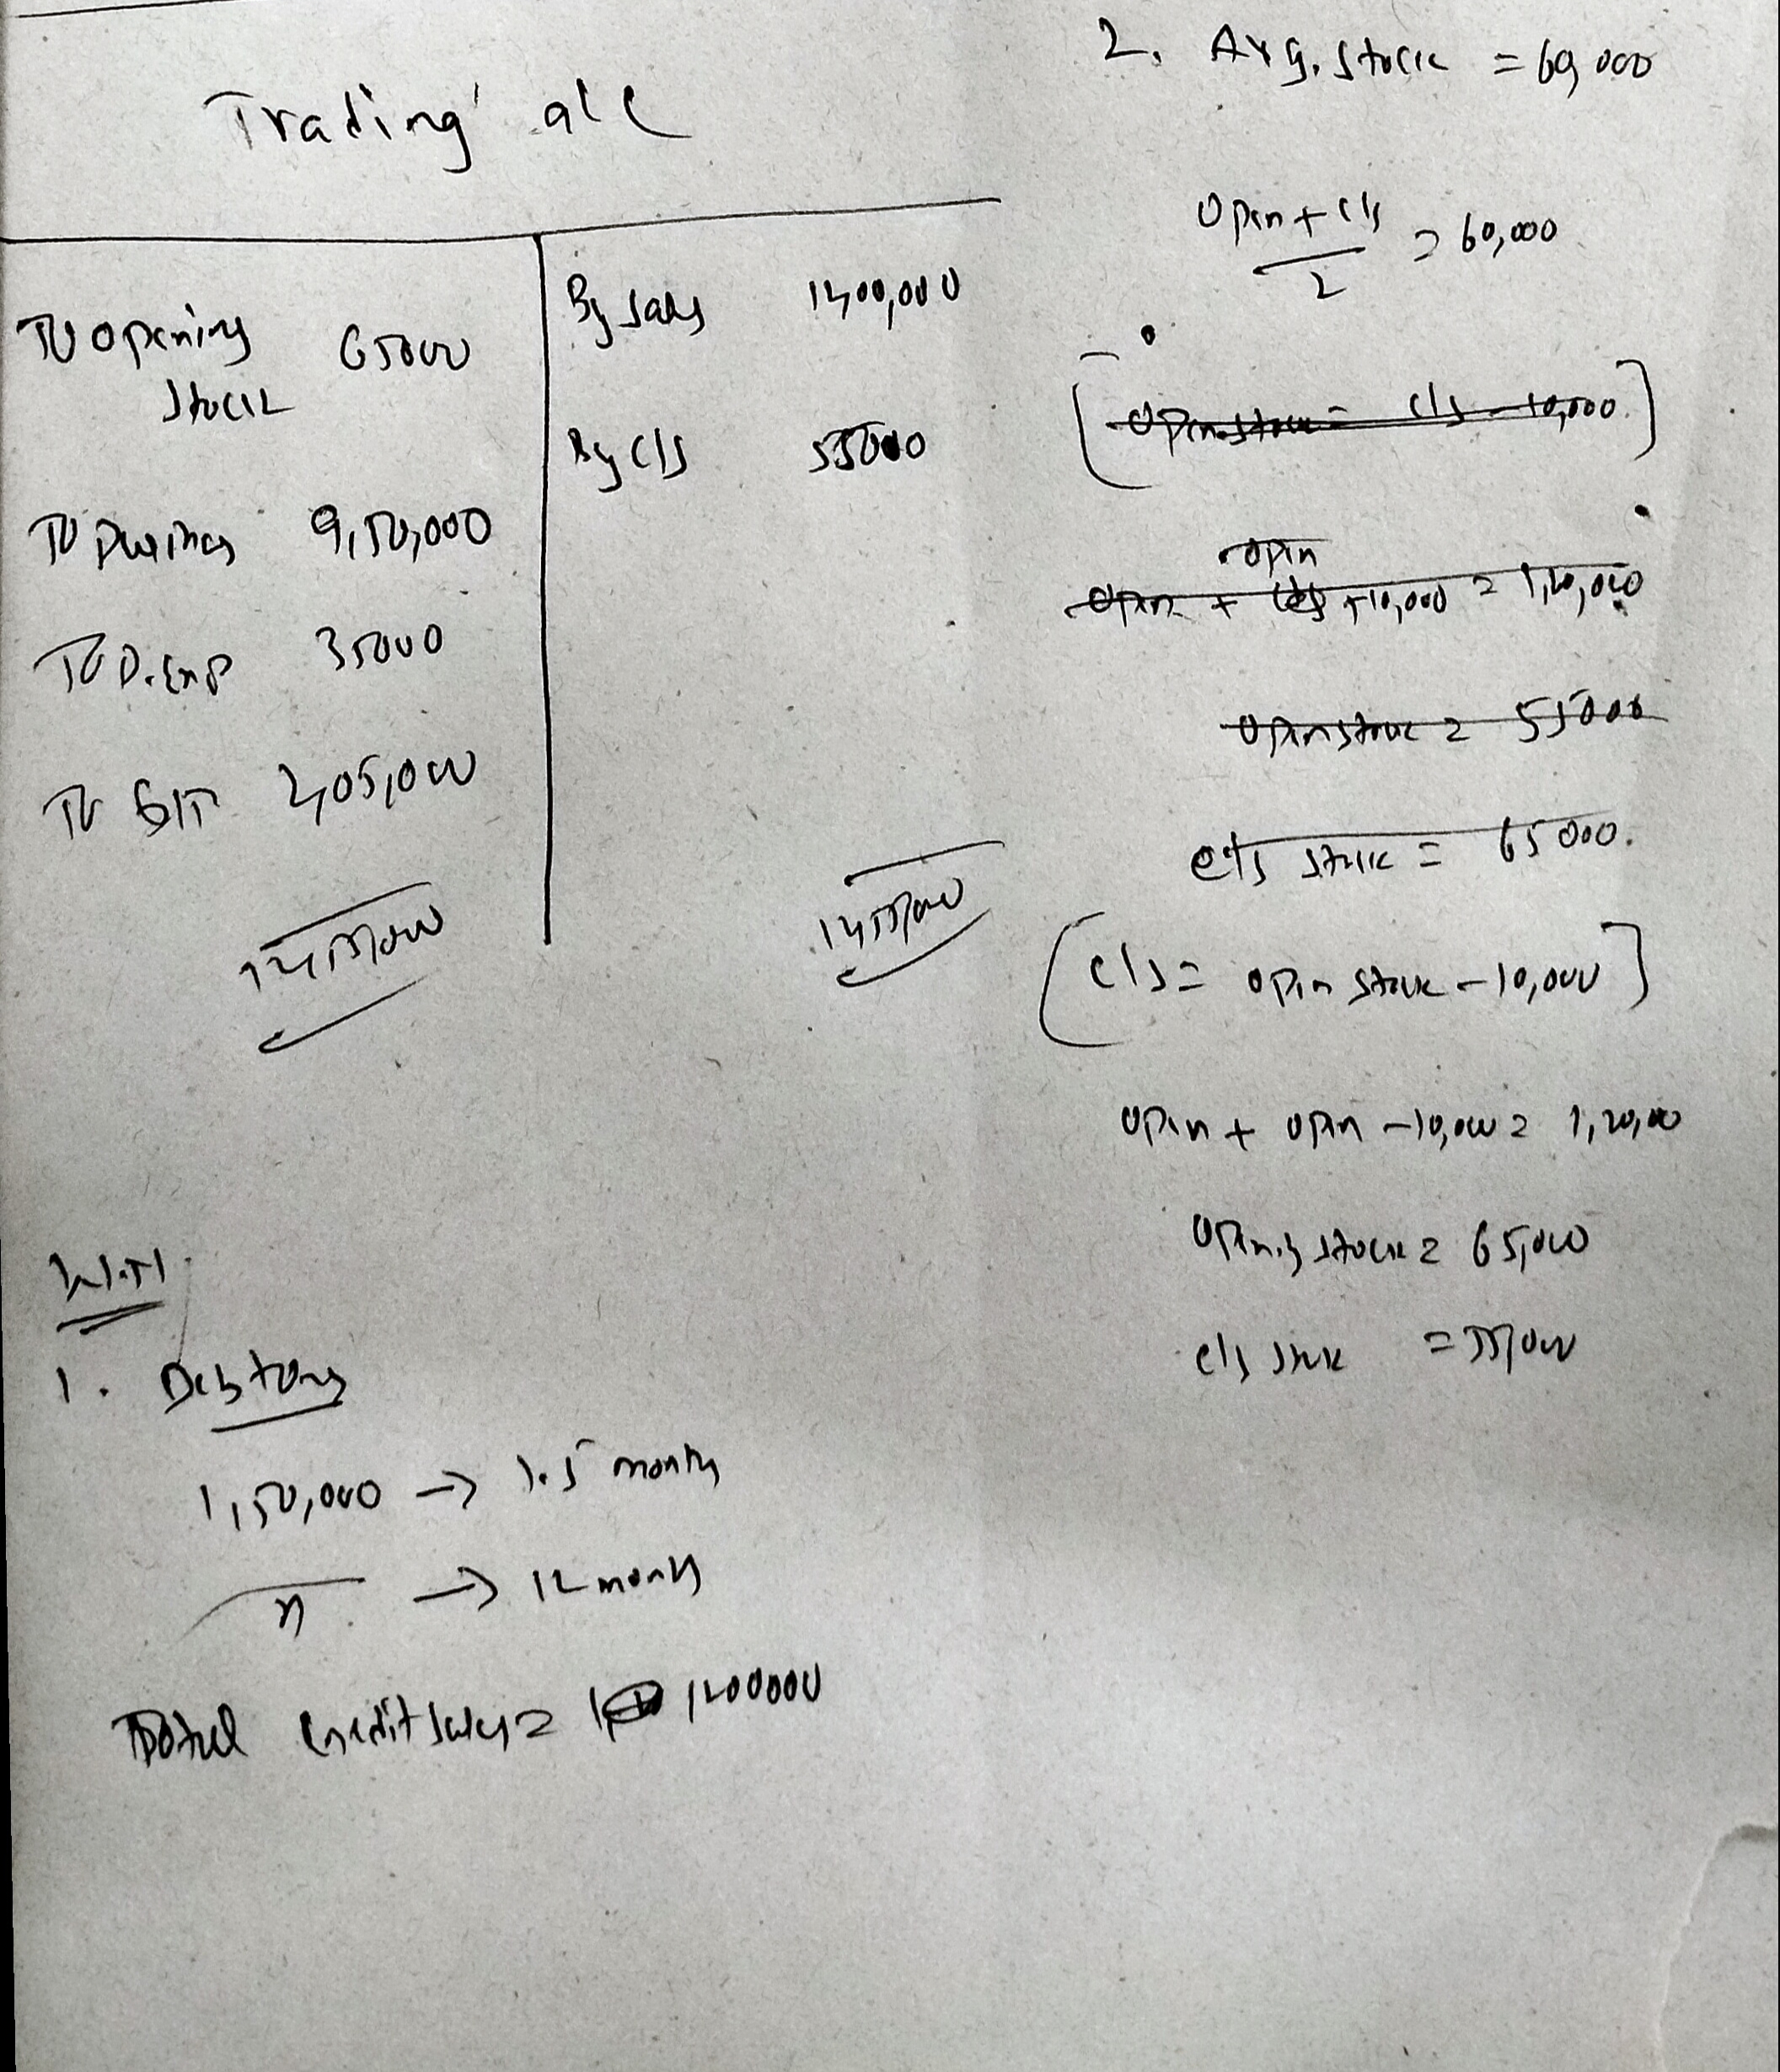 Trading a/c
To Opening Stock 65000
By Sales 1400,000
By C/S 55000
To Purchas 9,50,000
To D.Exp 35000
To G/P 4,05,000
1455,000
1455,000
W.N
1. Debtors
1,50,000 → 1.5 month
n → 12 month
Total credit sales = 1200000
2. Avg. Stock = 60,000
Open + C/S / 2 = 60,000
[Open.Stock = C/S - 10,000]
Open
Open + C/S + 10,000 = 1,20,000
Open stock = 55000
C/S Stock = 65000.
[C/S = Open Stock - 10,000]
Open + Open - 10,000 = 1,20,00
Opening Stock = 65,000
C/S Stock = 55,000